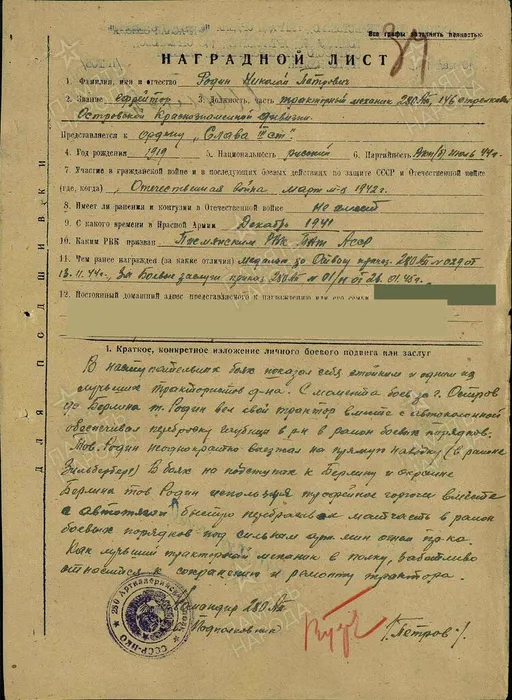 Все графы заполнить полностью
39
НАГРАДНОЙ ЛИСТ
1. Фамилия, имя и отчество Родин Николай Петрович
2. Звание ефрейтор, 3. Должность, часть тракторный механик 280 АП, 146 стрелковой
Островской Краснознаменной дивизии.
Представляется к ордену „Слава III ст"
4. Год рождения 1919 5. Национальность русский 6. Партийность ВКП(б) июль 44 г.
7. Участие в гражданской войне и в последующих боевых действиях по защите СССР и Отечественной войне
(где, когда) Отечественная война март м-ц 1942 г.
8. Имеет ли ранения и контузии в Отечественной войне не имеет
9. С какого времени в Красной Армии Декабрь 1941
10. Каким РВК призван РВК Тат Асср
11. Чем ранее награжден (за какие отличия) медалью за Отвагу приказ. 280 АП № 029 от
13.11.44 г., За Боевые заслуги приказ 280 АП № 01/н от 26.01.45 г.
12. Постоянный домашний адрес представляемого к награждению или его семьи
1. Краткое, конкретное изложение личного боевого подвига или заслуг
В наступательных боях показал себя стойким и одним из
лучших трактористов д-на. С момента боев за г. Остров
до Берлина т. Родин вел свой трактор вместе с автоколонной
обеспечивал переброску гаубиц в р-н в район боевых порядков.
Тов. Родин неоднократно выезжал на прямую наводку (в районе
Зильберберг) В боях на подступах к Берлину и окраине
Берлина тов Родин используя трофейное горючее вместе
с автотягой быстро перебрасывал матчасть в район
боевых порядков под сильным арт. мин огнем пр-ка.
Как лучший тракторный механик в полку, заботливо
относится к сохранению и ремонту трактора.
Командир 280 АП
Подполковник /Петров/
280 Артиллерийский полк
СССР-НКО
ДЛЯ ПОДШИВКИ
ПАМЯТЬ НАРОДА